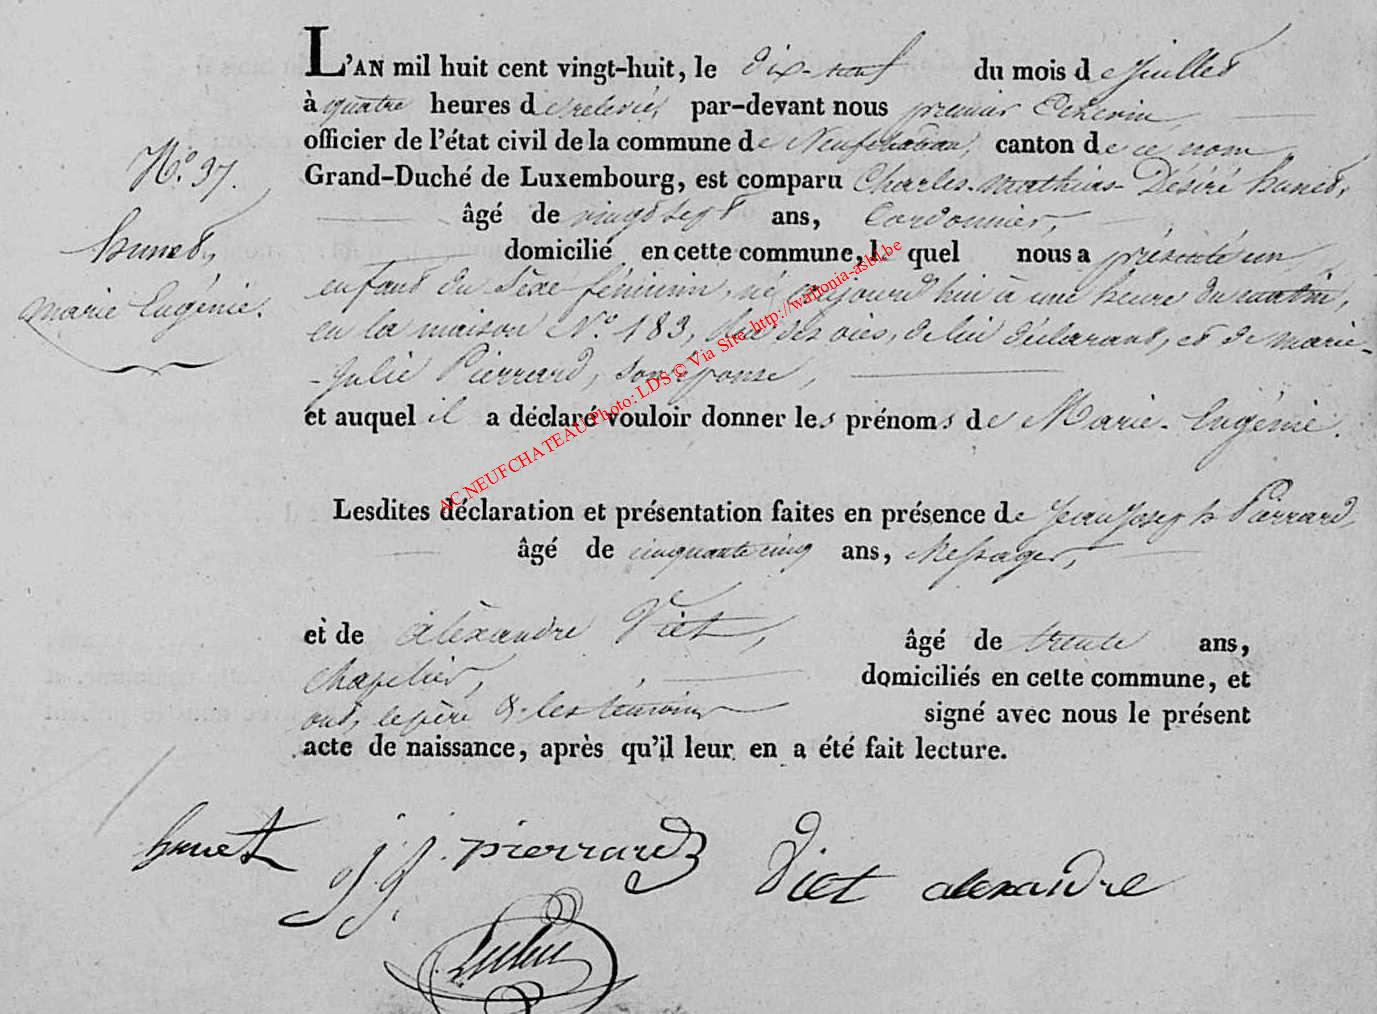 L'AN mil huit cent vingt-huit, le dix-neuf du mois de juillet
à quatre heures de relevée, par-devant nous premier Echevin,
officier de l'état civil de la commune de Neufchateau, canton de ce nom
Grand-Duché de Luxembourg, est comparu Charles-mathias-Désiré hunet,
âgé de vingt sept ans, Cordonnier,
domicilié en cette commune, le quel nous a présenté un
enfant du sèxe féminin, né aujourd'hui à une heure du matin,
en la maison N.o 183, des oies, de lui déclarant, et de marie-
-Julie Pierrard, son épouse,
et auquel il a déclaré vouloir donner les prénoms de Marie-Eugénie.
N.o 37.
hunet,
marie Eugénie.
Lesdites déclaration et présentation faites en présence de Jean Joseph Pierrard,
âgé de cinquante cinq ans, Messager,
et de Alèxandre Viet, âgé de trente ans,
chapelier, domiciliés en cette commune, et
ont, le père & les témoins signé avec nous le présent
acte de naissance, après qu'il leur en a été fait lecture.
hunet j. j. pierrard Viet alexandre
AC NEUFCHATEAU Photo: LDS © Via Site http://wallonia-asbl.be